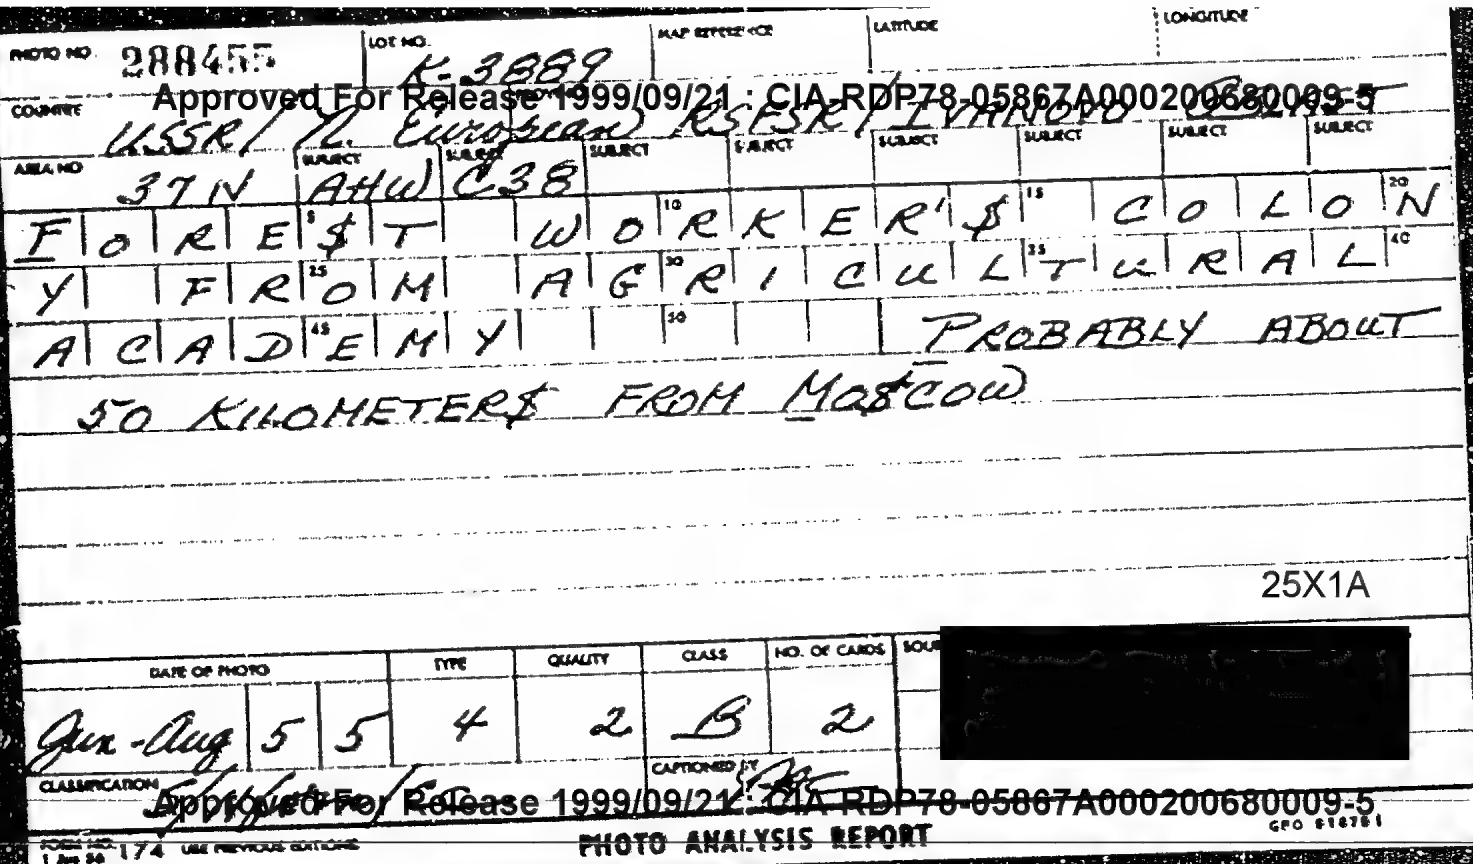 PHOTO NO. 288455 LOT NO. K-3889 MAP REFERENCE LATITUDE LONGITUDE
Approved For Release 1999/09/21 : CIA-RDP78-05867A000200680009-5
COUNTRY USSR/N. European RSFSR/IVANOVO OBLAST
AREA NO 37N SUBJECT AHW SUBJECT C38 SUBJECT SUBJECT SUBJECT SUBJECT SUBJECT SUBJECT
FORE$T WORKER'$ COLON
Y FROM AGRICULTURAL
ACADEMY PROBABLY ABOUT
50 KILOMETER$ FROM MO$COW
25X1A
DATE OF PHOTO TYPE QUALITY CLASS NO. OF CARDS
Jun-Aug 55 4 2 B 2
CLASSIFICATION CAPTIONED BY
Approved For Release 1999/09/21 : CIA-RDP78-05867A000200680009-5
FORM NO. 1 174 USE PREVIOUS EDITIONS PHOTO ANALYSIS REPORT GPO